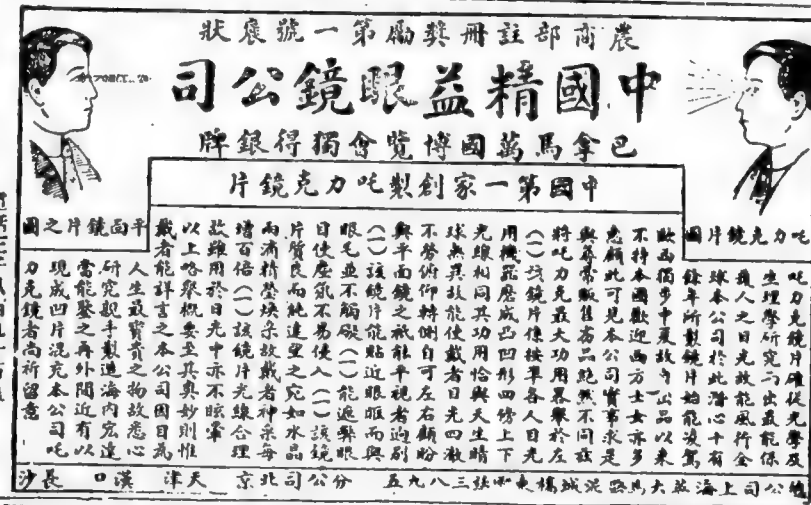 農商部註冊獎勵第一號褒狀
中國精益眼鏡公司
巴拿馬萬國博覽會獨得銀牌
中國第一家創製吒力克鏡片
吒力克鏡片圖
吒力克鏡片確從光學及
生理學研究而出最能保
護人之目光故能風行全
球本公司於此潛心十有
餘年所製鏡片始能凌駕
歐西獨步中夏故出品以來
不特本國歡迎西方士女亦多
惠顧此可見本公司實事求是
與尋常販售劣品絕然不同茲
將吒力克最大功用畧舉於左
(一)該鏡片係按準各人目光
用機器磨成凸凹形四傍上下
光線相同其功用恰與天生睛
球無異故能使戴者目光四澈
不勞俯仰轉側自可左右顧盼
與平面鏡之祇能平視者迥別
(一)該鏡片能貼近眼眶而與
眼毛並不觸礙(一)能遮蔽眼
目使塵氛不易侵入(一)該鏡
片質良而純達望之宛如水晶
兩滴精瑩煥采故戴者神采每
增百倍(一)該鏡片光線合理
故雖用於日光中亦不眩暈
以上略舉概要至其奧妙則惟
戴者能詳言之本公司因目為
人生最寶貴之物故悉心
研究親手製造海內宏達
當能鑒之再外間近有以
現成凹片混充本公司吒
力克鏡者尚祈留意
平面鏡片之圖
總公司上海英大馬路泥城橋東 三八九五 分公司北京 天津 漢口 長沙